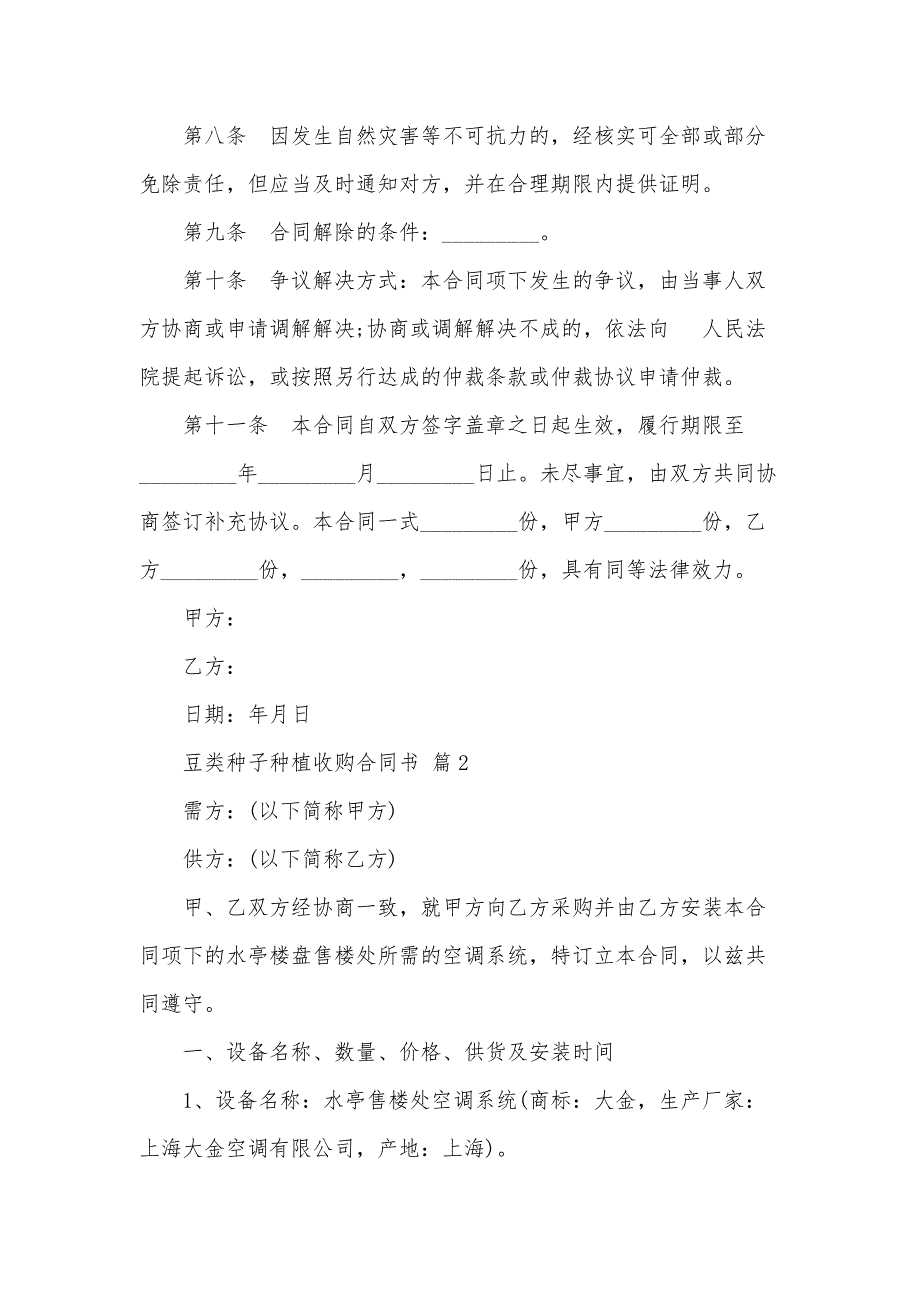 第八条　因发生自然灾害等不可抗力的，经核实可全部或部分
免除责任，但应当及时通知对方，并在合理期限内提供证明。
第九条　合同解除的条件：_________。
第十条　争议解决方式：本合同项下发生的争议，由当事人双
方协商或申请调解解决;协商或调解解决不成的，依法向　 人民法
院提起诉讼，或按照另行达成的仲裁条款或仲裁协议申请仲裁。
第十一条　本合同自双方签字盖章之日起生效，履行期限至
_________年_________月_________日止。未尽事宜，由双方共同协
商签订补充协议。本合同一式_________份，甲方_________份，乙
方_________份，_________，_________份，具有同等法律效力。
甲方：
乙方：
日期：年月日
豆类种子种植收购合同书 篇2
需方：(以下简称甲方)
供方：(以下简称乙方)
甲、乙双方经协商一致，就甲方向乙方采购并由乙方安装本合
同项下的水亭楼盘售楼处所需的空调系统，特订立本合同，以兹共
同遵守。
一、设备名称、数量、价格、供货及安装时间
1、设备名称：水亭售楼处空调系统(商标：大金，生产厂家：
上海大金空调有限公司，产地：上海)。